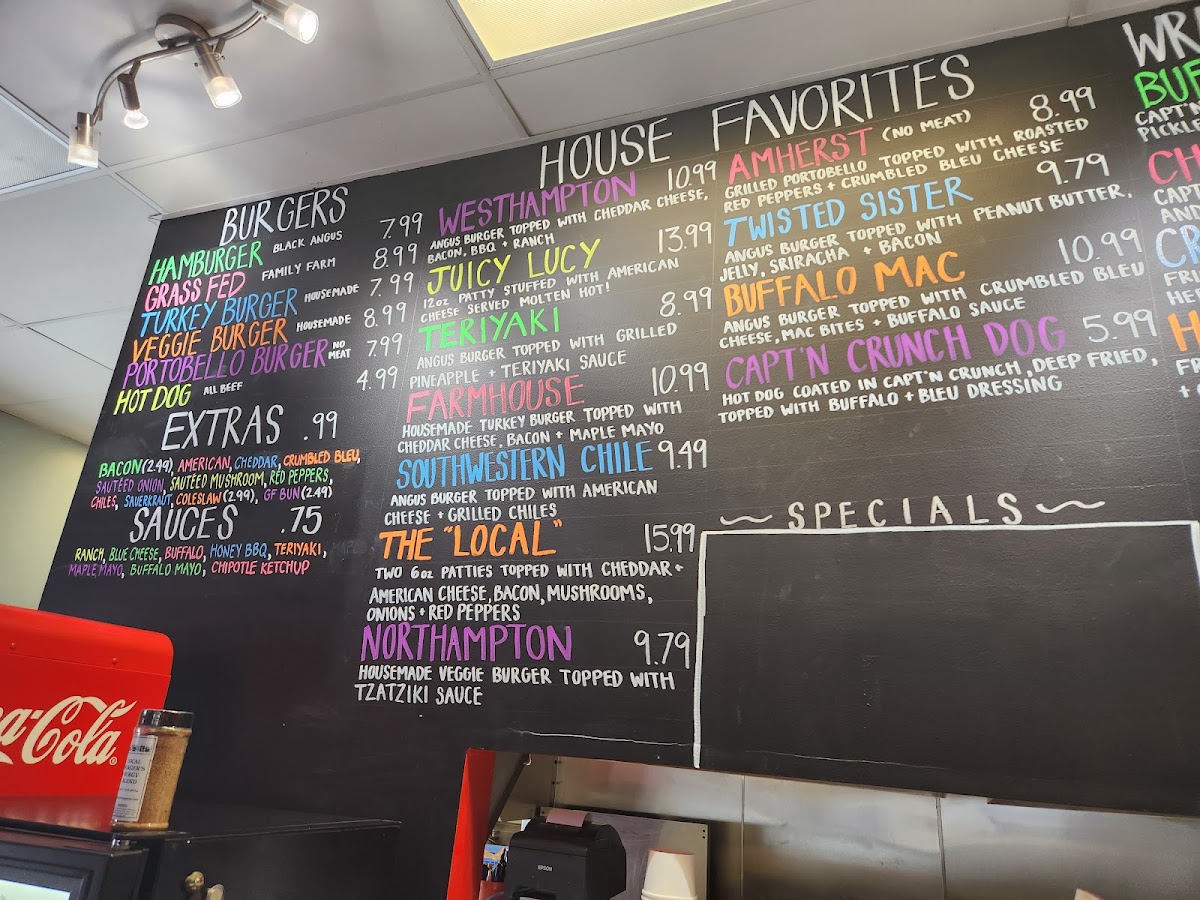 BURGERS
HAMBURGER BLACK ANGUS 7.99
GRASS FED FAMILY FARM 8.99
TURKEY BURGER HOUSEMADE 7.99
VEGGIE BURGER HOUSEMADE 8.99
PORTOBELLO BURGER NO MEAT 7.99
HOT DOG ALL BEEF 4.99
EXTRAS .99
BACON (2.49), AMERICAN, CHEDDAR, CRUMBLED BLEU,
SAUTÉED ONION, SAUTÉED MUSHROOM, RED PEPPERS,
CHILES, SAUERKRAUT, COLESLAW (2.99), GF BUN (2.49)
SAUCES .75
RANCH, BLUE CHEESE, BUFFALO, HONEY BBQ, TERIYAKI,
MAPLE MAYO, BUFFALO MAYO, CHIPOTLE KETCHUP
HOUSE FAVORITES
WESTHAMPTON 10.99
ANGUS BURGER TOPPED WITH CHEDDAR CHEESE,
BACON, BBQ + RANCH
JUICY LUCY 13.99
12oz PATTY STUFFED WITH AMERICAN
CHEESE SERVED MOLTEN HOT!
TERIYAKI 8.99
ANGUS BURGER TOPPED WITH GRILLED
PINEAPPLE + TERIYAKI SAUCE
FARMHOUSE 10.99
HOUSEMADE TURKEY BURGER TOPPED WITH
CHEDDAR CHEESE, BACON + MAPLE MAYO
SOUTHWESTERN CHILE 9.49
ANGUS BURGER TOPPED WITH AMERICAN
CHEESE + GRILLED CHILES
THE "LOCAL" 15.99
TWO 6oz PATTIES TOPPED WITH CHEDDAR +
AMERICAN CHEESE, BACON, MUSHROOMS,
ONIONS + RED PEPPERS
NORTHAMPTON 9.79
HOUSEMADE VEGGIE BURGER TOPPED WITH
TZATZIKI SAUCE
AMHERST (NO MEAT) 8.99
GRILLED PORTOBELLO TOPPED WITH ROASTED
RED PEPPERS + CRUMBLED BLEU CHEESE
TWISTED SISTER 9.79
ANGUS BURGER TOPPED WITH PEANUT BUTTER,
JELLY, SRIRACHA + BACON
BUFFALO MAC 10.99
ANGUS BURGER TOPPED WITH CRUMBLED BLEU
CHEESE, MAC BITES + BUFFALO SAUCE
CAPT'N CRUNCH DOG 5.99
HOT DOG COATED IN CAPT'N CRUNCH, DEEP FRIED,
TOPPED WITH BUFFALO + BLEU DRESSING
SPECIALS
WR
BUF
CAPT'N
PICKLE
CH
CAPT
AN
CR
FRI
HE
H
FR
+
a-Cola
EPSON